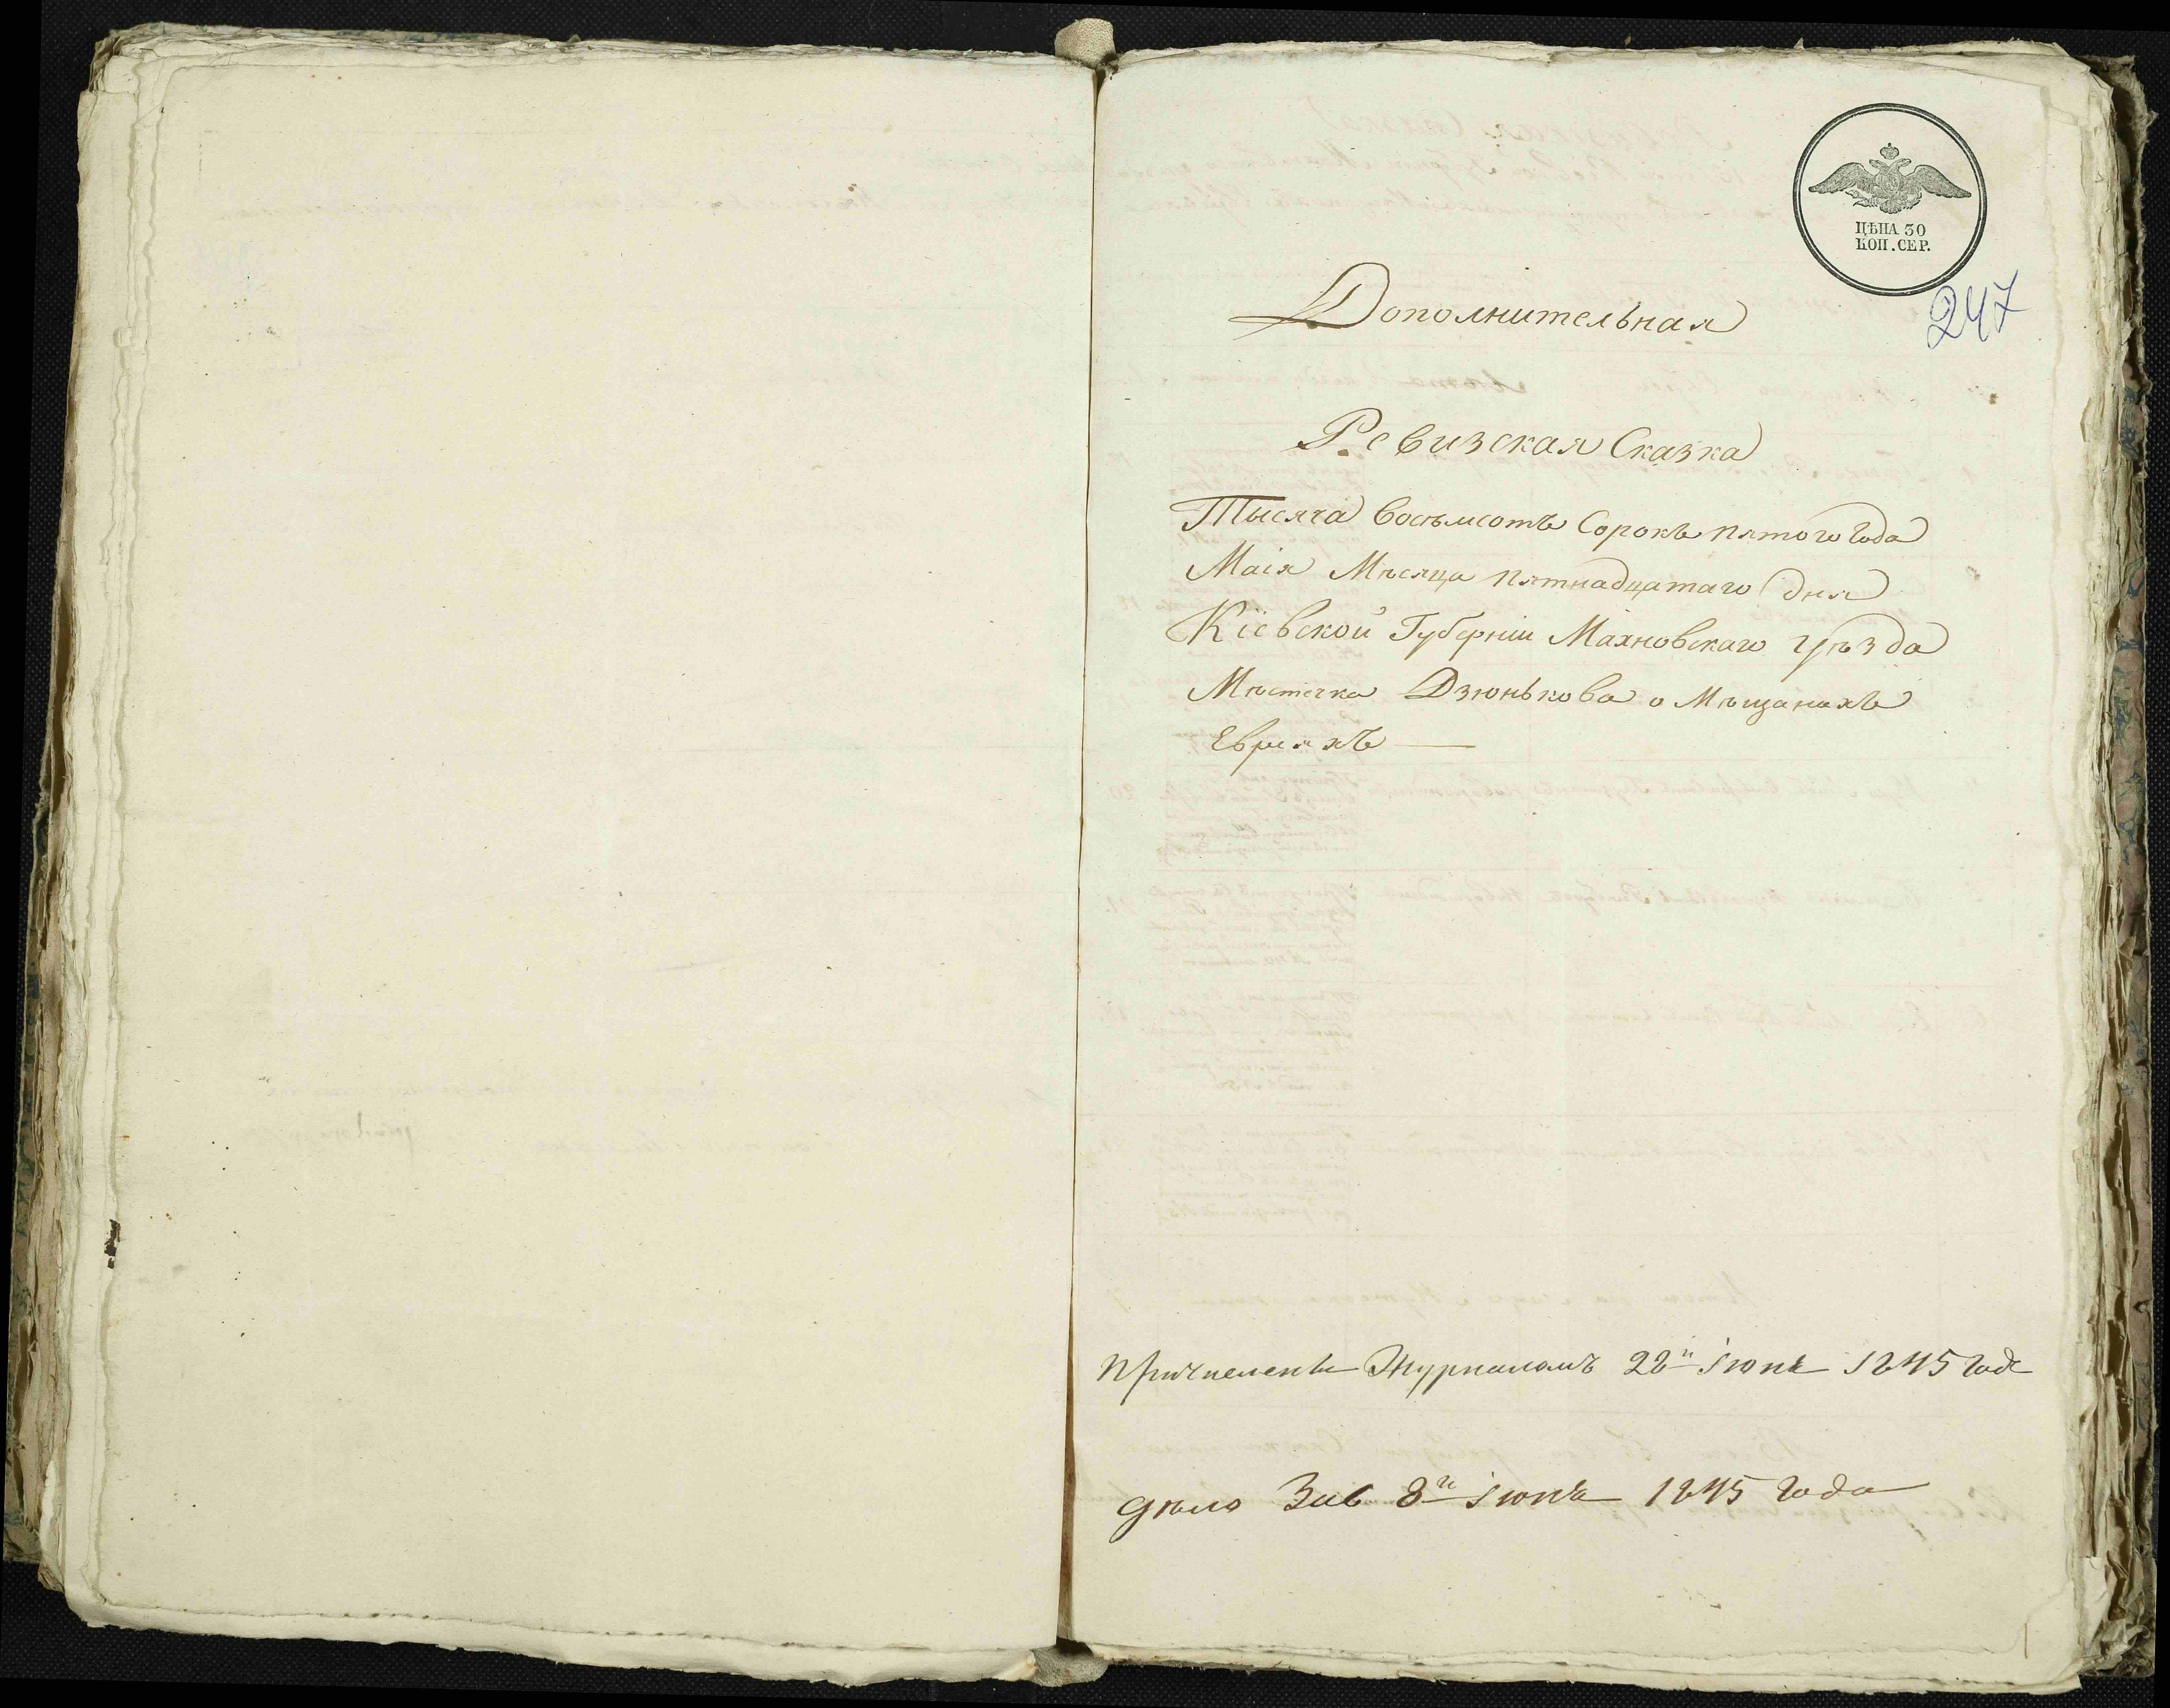 ЦѢНА 30
КОП. СЕР.
247
Дополнительная
Ревизская Сказка
Тысяча восѣмсотъ Сорокъ пятого года
Маія Мѣсяца пятнадцатаго дня
Кіевской Губерніи Махновскаго уѣзда
Мѣстечка Дзюнькова о Мѣщанахъ
Евреяхъ —
Причислены Журналомъ 22й Іюня 1845 года
дѣло 8й Іюня 1845 года